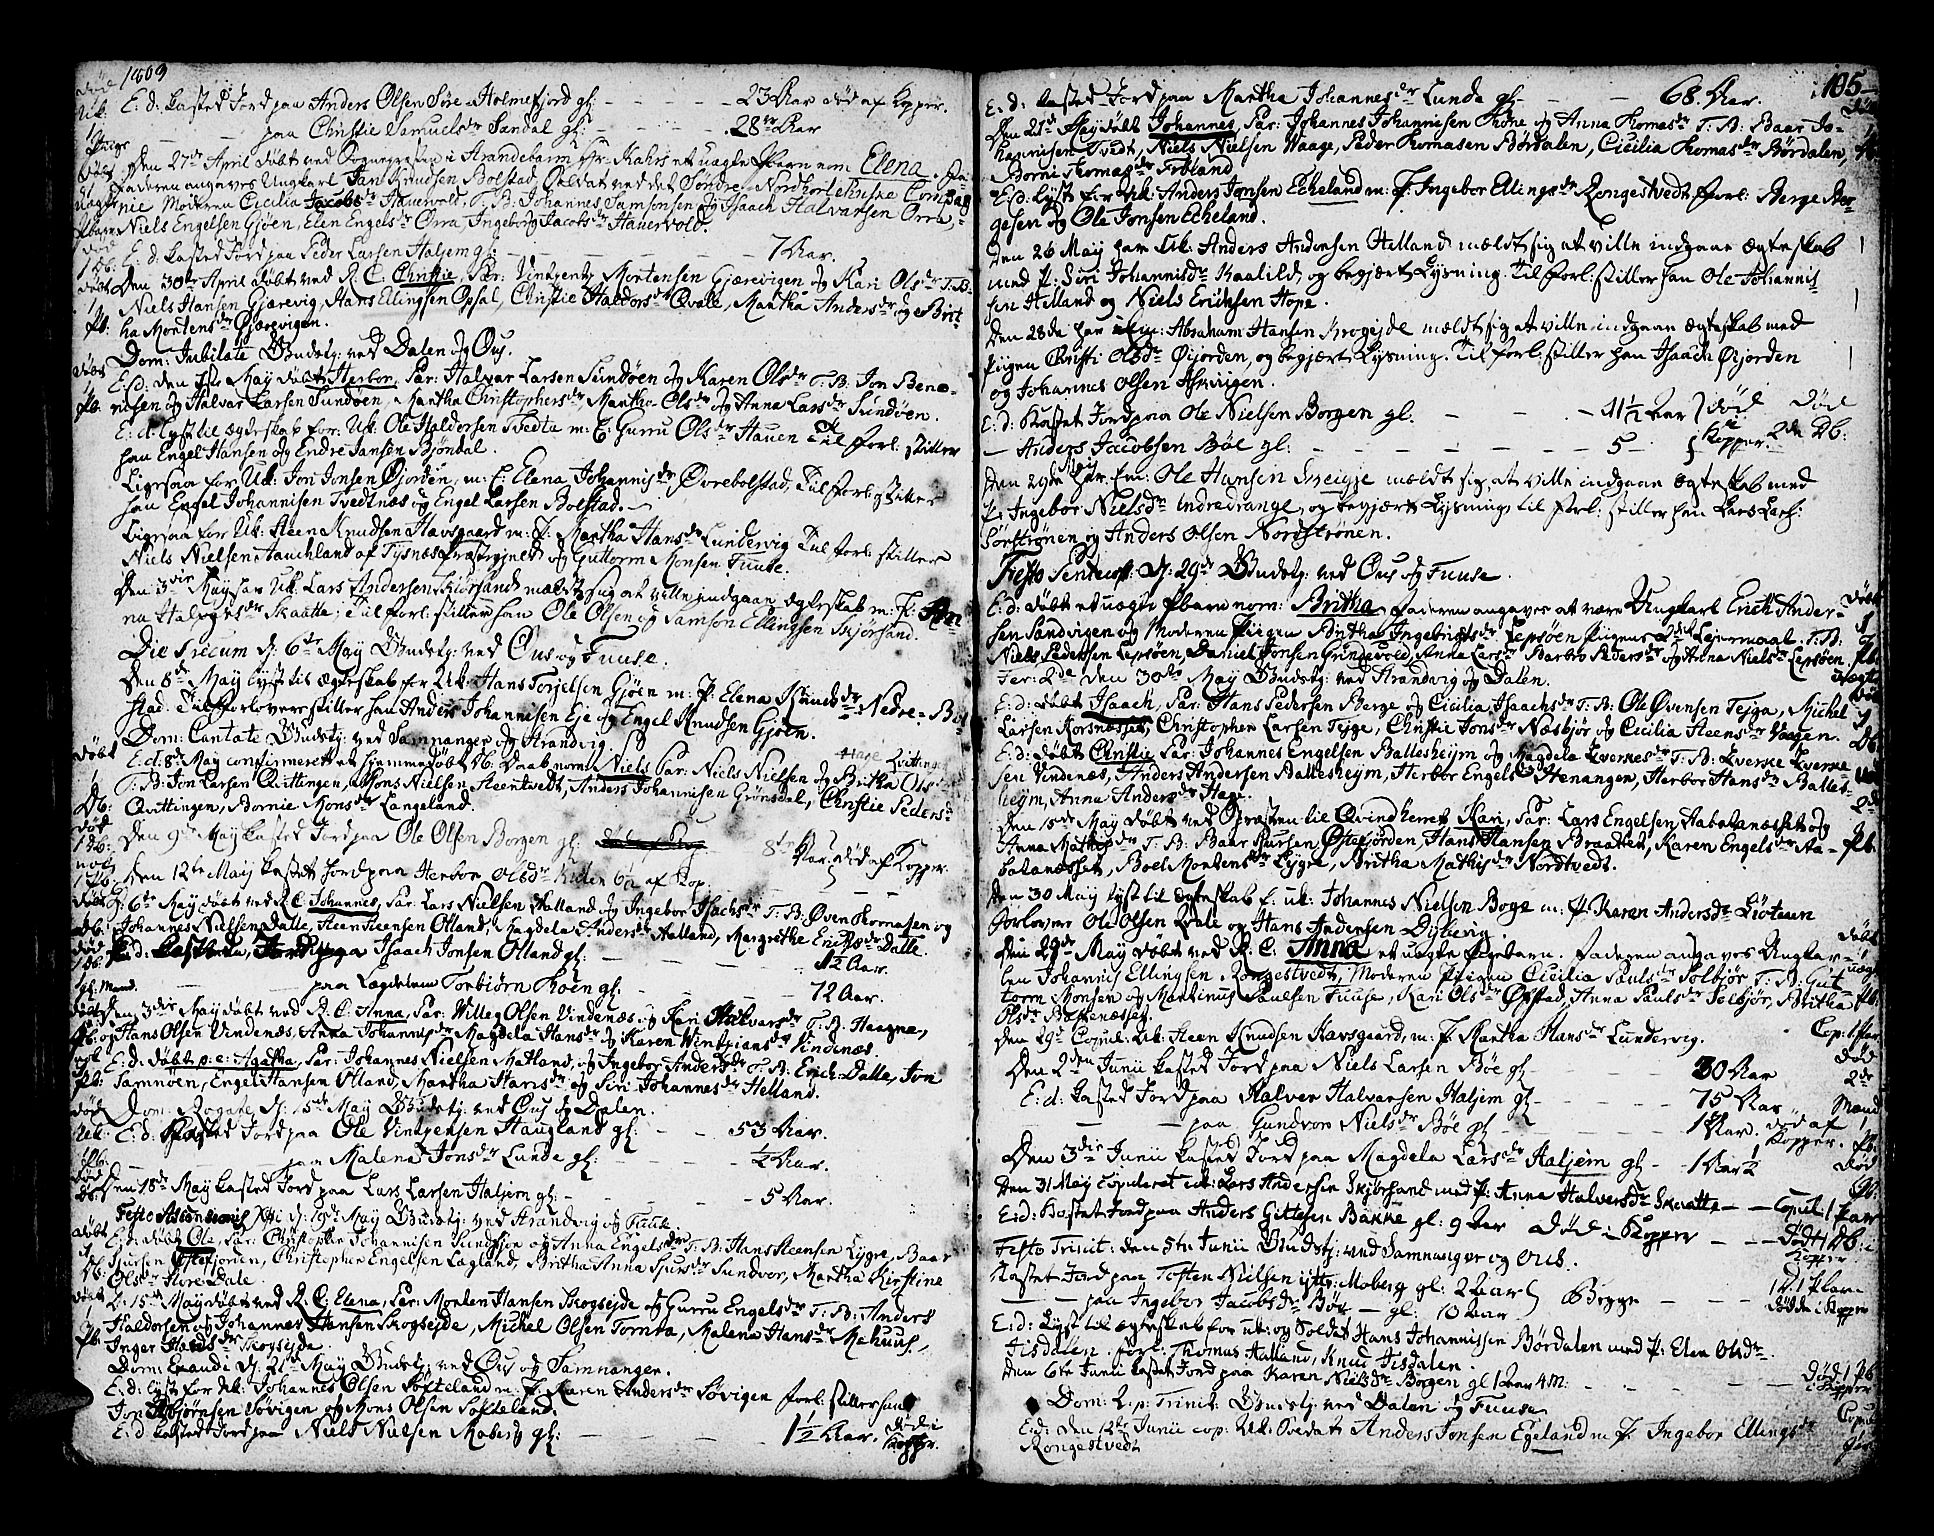 1809
E: d: kasted Jord paa Anders Olsen Søre-Holmefjord gl: - - - 23 Aar død af Kopper.
- - paa Christie Samuelsdr Sandal gl: - - - 28 Aar
Den 27de April døbt ved Sognepræsten i Strandebarm Hr. Kahrs et uægte Pbarn nom: Elena.
Faderen angaves Ungkarl Jan Knudsen Bolstad Soldat ved det Søndre Nordhorlehnske Compag-
nie Moderen Cecilia Jacobsdr Hauervold. T. B: Johannes Samsonsen og Isaach Halvarsen Orra,
Niels Engelsen Gjøen, Elen Engelsdr Orra, Ingebor Jacobsdr Hauervold.
E: d: kasted Jord paa Peder Larsen Haljem gl: - - - 7 Aar.
Den 30te April døbt ved R. C. Christie, Par: Vintzentz Mortensen Gjærevigen og Kari Olsdr T. B:
Niels Hansen Gjærevig, Hans Ellingsen Opsal, Christie Haldorsdr Qvale, Martha Andersdr og Birt-
ha Mortensdr Gjærevigen.
Dom: Jubilate Gudstj: ved Dalen og Ous.
E: d: den 7de May døbt Herbor, Par: Halvar Larsen Sundøen og Karen Olsdr T. B: Jon Bene-
ntsen og Halvar Larsen Sundøen, Martha Christophersdr, Martha Olsdr og Anna Larsdr Sundøen.
E: d: lyst til ægteskab for: Uk: Ole Haldorsen Tvedta m: E: Gurru Olsdr Hauen Til forl: stiller
han Engel Hansen og Endre Jansen Bjøndal.
Ligesaa for Uk: Jon Jonsen Øjorden, m: E: Elena Johannisdr Øvrebolstad, Til forl: stiller
han Engel Johannisen Tvedtnæs og Engel Larsen Bolstad.
Ligesaa for Uk: Steen Knudsen Havsgaard m: P. Martha Hansdr Lundervig Til forl: stiller
Niels Nielsen Hauchland af Tysnæs Præstegjeld og Guttorm Monsen Fuuse.
Den 3die May har Uk: Lars Andersen Skjørsand meldt sig at ville indgaae ægteskab m: P: An-
na Halvarsdr Skaatte; Til forl: stiller han Ole Olsen og Samson Ellingsen Skjørsand.
Die Precum d: 6te May Gudstj: ved Ous og Fuuse.
Den 8de May lyst til ægteskab for Uk: Hans Torjelsen Gjøen m: P: Elena Knudsdr Nedre-Bol-
stad. Til Forlovere stiller han Anders Johannisen Eje og Engel Knudsen Gjøen.
Dom: Cantate Gudstj: ved Samnanger og Strandvig.
E: d: 8de May confirmeret et hjemmedøbt Db: Daab nom: Niels Par: Niels Nielsen Hage og Britha Olsdr Qvitting
T: B: Jon Larsen Qvittingen, Mons Nielsen Steentvedt, Anders Johannisen Grønsdal, Christie Pedersdr
Qvittingen, Bornie Monsdr Langeland.
Den 9de May kasted Jord paa Ole Olsen Borgen gl: 8te Aar. død af Kopper.
Den 12te May kasted Jord paa Herbor Olsdr 6½ af Kop:
d: 6te May døbt ved R. C. Johannes, Par: Lars Nielsen Halland og Ingebor Isachsdr T: B: Øven Thomasen og
Johannes Nielsen Dalle, Steen Steensen Ølland, Magdela Andersdr Halland, Margrethe Erichsdr Dalle.
E: d: kasted Jord paa Isaach Jonsen Ølland gl: - - - 1½ Aar.
- - paa Lægdelem Torbiørn Røen gl: - - - 72 Aar.
Den 3die May døbt ved R. C. Anna, Par: Willeg Olsen Vindenæs og Kari Halvarsdr T: B: Haagne,
og Hans Olsen Vindenæs, Anna Johannisdr, Magdela Hansdr og Karen Vintziansdr Vindenæs.
E: d: døbt p. e: Agatha, Par: Johannes Nielsen Mætland, og Ingebor Andersdr T: B: Erich Dalle, Jon
Samnøen, Engel Hansen Ølland, Martha Hansdr og Siri Johannesdr Helland.
Dom: Rogate, d: 15de May Gudstj: ved Ous og Dalen.
E: d: kasted Jord paa Ole Vintzensen Haugland gl: - - 53 Aar.
- - paa Malena Jonsdr Lunde gl: - - - ½ Aar.
Den 18de May kasted Jord paa Lars Larsen Haljem gl: - - - 5 Aar.
Festo Ascensionis Xsti d: 19de May Gudstj: ved Strandvig og Fuuse.
E: d: døbt Ole, Par: Christopher Johannisen Sundvor og Anna Engelsdr T: B: Hans Steensen Lygre, Baar
Sjursen Østefjorden, Christopher Engelsen Lagland, Britha Anna Sjursdr Sundvor, Martha Kirstine
Olsdr Store Dale.
D: 15de May døbt ved R. C. Elena, Par: Morten Hansen Skogsejde og Gurru Engelsdr T: B: Anders
Haldorsen og Johannes Hansen Skogsejde, Michel Olsen Tornra, Malena Hansdr Mahuus,
Inger Hansdr Skogsejde.
Dom: Exaudi d. 21de May Gudstj: ved Ous og Samnanger.
E: d: lyst for Uk: Johannes Olsen Søfteland m: P. Karen Andersdr Søvigen forl: stiller han
Jon Asbjørnsen Søvigen og Mons Olsen Søfteland.
E: d kasted Jord paa Niels Nielsen Moberg gl: - - - 1½ Aar. død i Kopper.
105
E: d: kasted Jord paa Martha Johannesdr Lunde gl - - 68. Aar.
Den 21de May døbt Johannes, Par: Johannes Johannisen Thøne og Anna Thomasdr T. B: Baar Jo-
hannisen Tvedt, Niels Nielsen Waage, Peder Thomasen Børdalen, Cicilia Thomasdr Børdalen,
Borni Thomasdr Frøland
E: d: Lyst for Uk: Anders Jonsen Echeland m: P. Ingebor Ellingsdr Rongestvedt forl: Berge Ber-
gesen og Ole Jonsen Echeland.
Den 26 May har Uk: Anders Andersen Helland mældt sig at ville indgaae Ægteskab
med P: Siri Johannisdr Kaalild, og begjært Lysning. Til forl: stiller han Ole Johannis-
sen Helland og Niels Erichsen Hope.
Den 28de har Em: Abraham Hansen Krogejde mældt sig at ville indgaae Ægteskab med
Piigen Christi Olsdr Øijorden, og begjært Lysning. Til forl: stiller han Isaach Øijorden
og Johannes Olsen Aarvigen.
E: d: Kastet Jord paa Ole Nielsen Borgen gl. - - - 11½ Aar død
- Anders Jacobsen Bøe gl: - - - 5 - i Kopper. Døde 2de Db:
Den 29de May har Em: Ole Hansen Sveigje mældt sig at ville indgaae Ægteskab med
P: Ingebor Nielsdr Indredrange, og begjært Lysning, til forl: stiller han Lars Lars:
Sørstrønen og Anders Olsen Nordstrønen.
Festo Pentecost: d: 29de Gudstj: ved Ous og Fuuse.
E: d: døbt et uægte Pbarn nom: Britha Faderen angaves at være Ungkarl Erich Ander-
sen Sandvigen og Moderen Piigen Britha Ingebrigtsdr Lepsøen Piigens 2det Lejermaal. T. B:
Niels Pedersen Lepsøen, Daniel Jonsen Grindevold, Anna Larsdr Barbro Pedersdr og Anna Nielsdr Lepsøen.
Fer: 2da den 30te May Gudstj: ved Strandvig og Dalen.
E: d: døbt Isaach, Par: Hans Pedersen Berge og Cicilia Isaachsdr T: B: Ole Øvensen Tejga, Michel
Larsen Korsnæsset, Christopher Larsen Tygge, Christie Jonsdr Næsbjør og Cecilia Steensdr Vaagen.
E: d: døbt Christie, Par: Johannes Engelsen Ballesheym, og Magdela Sverkesdr T: B: Sverke Sverke-
sen Vindenæs, Anders Andersen Ballesheym, Herbor Engelsdr Henangen, Herbor Hansdr Balles-
heym, Anna Andersdr Hage.
Den 15de May døbt ved Præsten til Qvindherret Kari, Par: Lars Engelsen Aabatanæsset og
Anna Mathisdr T: B: Baar Sjursen Østefjorden, Hans Hansen Braatten, Karen Engelsdr Aa-
batanæsset, Boel Mortensdr Lygre, Britha Mathisdr Nordtvedt.
Den 30 May lyst til ægteskab f. uk: Johannes Nielsen Boge m: P: Karen Andersdr Liøteen
Forlovere Ole Olsen Qvale og Hans Andersen Dybevig.
Den 29de May døbt ved R. C. Anna et uægte Pigebarn. Faderen angaves Ungkar-
len Johannis Ellingsen Rongestvedt, Moderen Piigen Cicilia Paulsdr Solbjør T: B: Gut-
torm Monsen og Martinus Paulsen Fuuse, Kari Olsdr Øfstad, Anna Paulsdr Solbjør, Britha
Olsdr Bakkenæsset.
Den 29de Copul: Uk: Steen Knudsen Havsgaard, m: P. Martha Hansdr Lundervig. Cop: 1 Par
Den 2den Junii kasted Jord paa Niels Larsen Bøe gl - - - 30 Aar
E: d: kasted Jord paa Halver Halvarsen Haljem gl - - - 75 Aar
- - paa Gundvor Nielsdr Bøe gl - - - 1 Aar. død af Kopper.
Den 3die Junii kasted Jord paa Magdela Larsdr Haljem gl - 1 Aar ½
Den 31 May copuleret uk: Lars Andersen Skjørsand med P: Anna Halversdr Skaatte - - Copul: 1 Par
E: d: Kastet Jord paa Anders Gittesen Bakke gl: 9 Aar død i Kopper - - - Dødt 1 Db: i Kopper.
Festo Trinit: den 5te Junii Gudstj: ved Samnanger og Ous.
Kastet Jord paa Tosten Nielsen ytter Moberg gl: 2 Aar
- - paa Ingebor Jacobsdr Bøe - gl: 10 Aar Begge - - - 1 D. 1 Pbarn døde i Kopper
E: d: Lyst til ægteskab for uk: og Soldat Hans Johannissen Børdalen med P: Elen Olsdr
Jisdalen. forl: Thomas Hatland, Knud Jisdalen.
Den 6te Junii kastet Jord paa Karen Nielsdr Borgen gl 1 Aar 4 M: - - - Død 1 Pb i Kopper
Dom: 2. p: Trinit. Gudstj: ved Dalen og Fuuse
E: d: Den 12te Junii cop: Uk: Soldat Anders Jonsen Egeland m P. Ingebor Ellingsdr
Rongestvedt